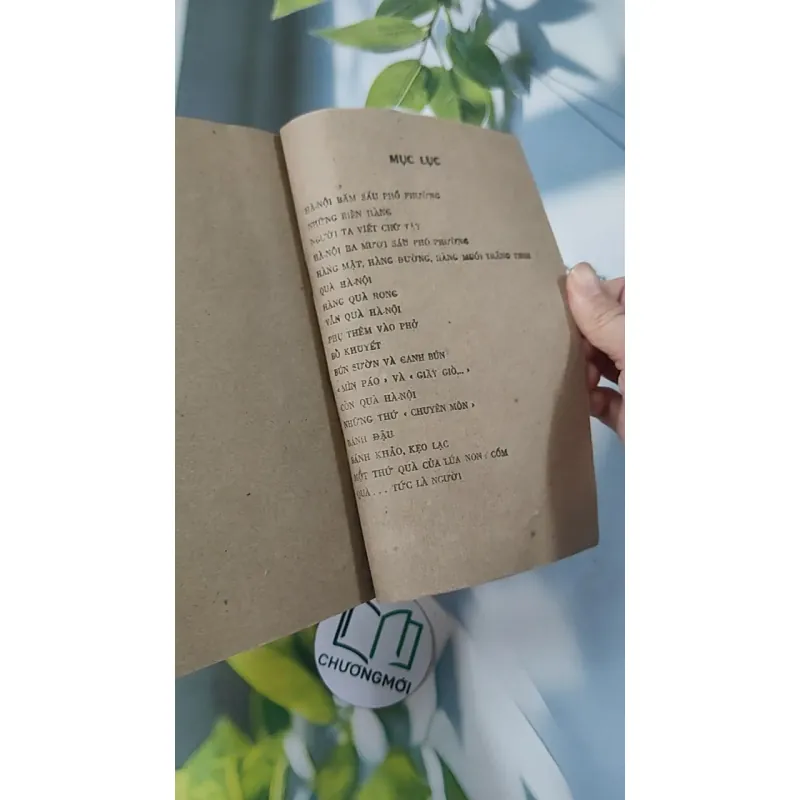 MỤC LỤC
HÀ-NỘI BĂM SÁU PHỐ PHƯỜNG
NHỮNG BIỂN HÀNG
NGƯỜI TA VIẾT CHỮ TÂY
HÀ-NỘI BA MƯƠI SÁU PHỐ PHƯỜNG
HÀNG MẬT, HÀNG ĐƯỜNG, HÀNG MUỐI TRẮNG TINH
QUÀ HÀ-NỘI
HÀNG QUÀ RONG
VẪN QUÀ HÀ-NỘI
PHỤ THÊM VÀO PHỞ
BỔ KHUYẾT
BÚN SƯỜN VÀ CANH BÚN
« MÌN PÁO » VÀ « GIẦY GIÒ... »
CÒN QUÀ HÀ-NỘI
NHỮNG THỨ « CHUYÊN MÔN »
BÁNH ĐẬU
BÁNH KHẢO, KẸO LẠC
MỘT THỨ QUÀ CỦA LÚA NON : CỐM
QUÀ . . . TỨC LÀ NGƯỜI
CHƯƠNGMỚI